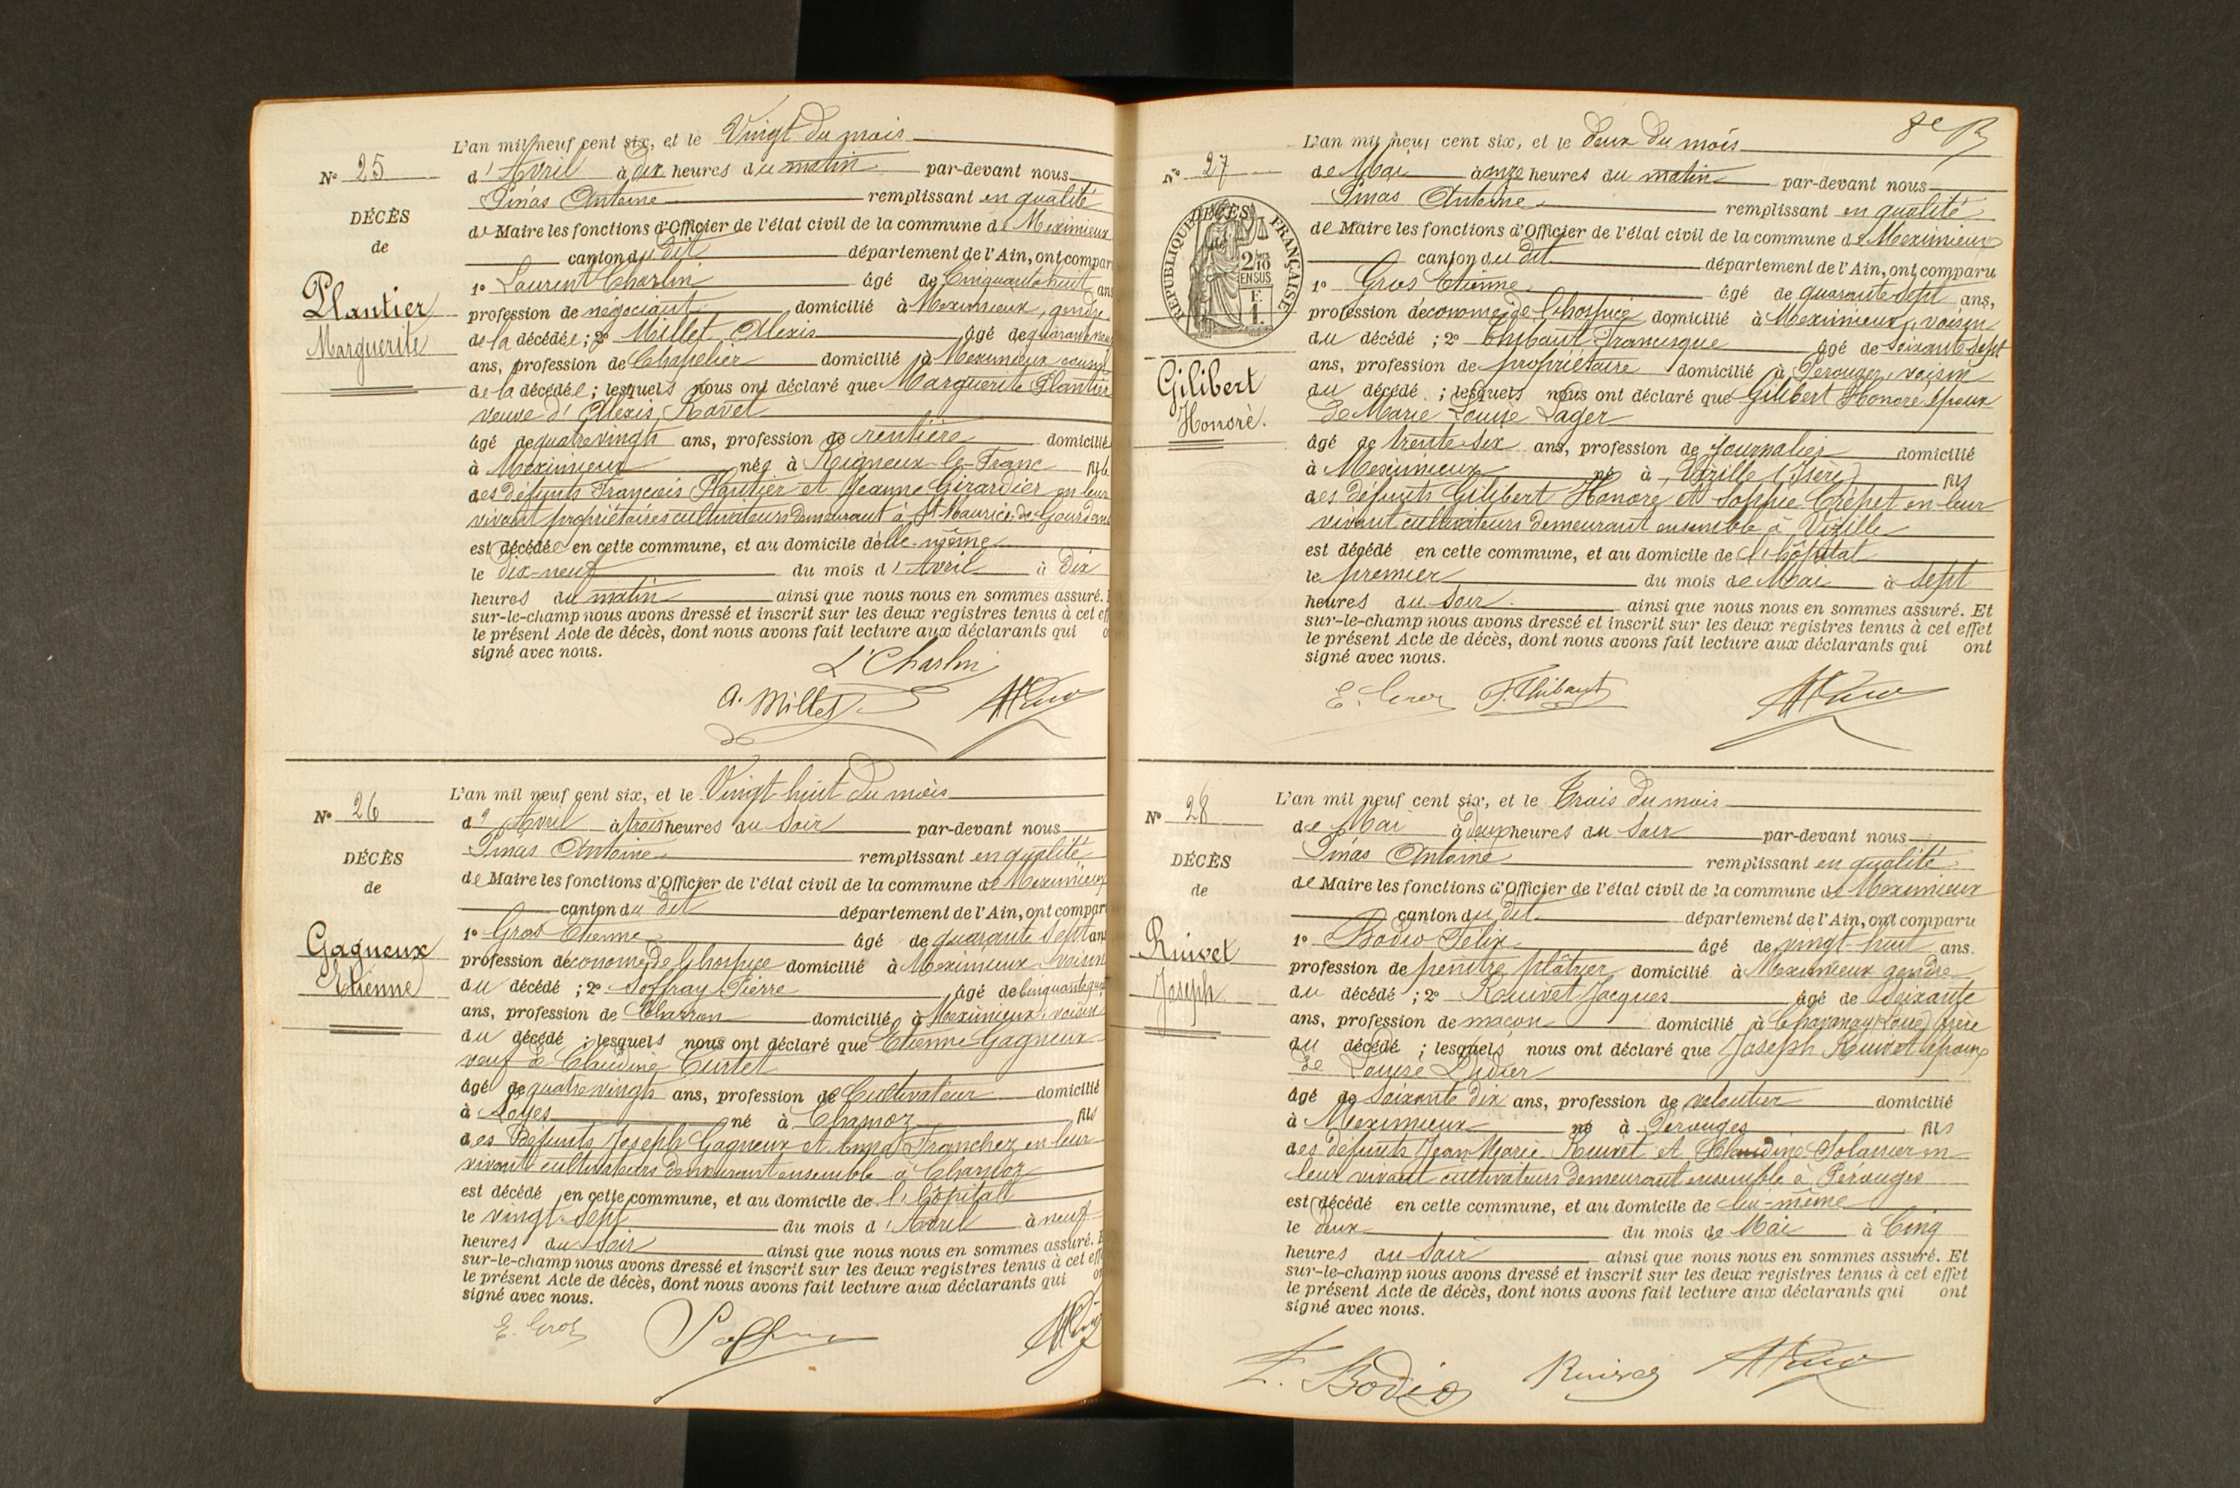 L'an mil neuf cent six, et le Vingt du mois
N° 25
d'Avril à dix heures du matin par-devant nous
Pinas Antoine remplissant en qualité
DÉCÈS
de Maire les fonctions d'Officier de l'état civil de la commune de Meximieux
de
canton du dit département de l'Ain, ont compar
1° Laurent Charlin âgé de Cinquante huit ans
Plantier
profession de négociant domicilié à Meximieux, gendre
Marguerite
de la décédée ; 2° Millet Alexis âgé de quarante neuf
ans, profession de Chapelier domicilié à Meximieux cousin
de la décédée ; lesquels nous ont déclaré que Marguerite Plantier
veuve d'Alexis Ravet
âgé de quatre vingts ans, profession de rentière domicilié
à Meximieux née à Rigneux-le-Franc fille
des défunts François Plantier et Jeanne Girardier en leur
vivant propriétaires cultivateurs demeurant à St Maurice-de-Gourdans
est décédée en cette commune, et au domicile d'elle-même
le dix-neuf du mois d'Avril à Dix
heures du matin ainsi que nous nous en sommes assuré.
sur-le-champ nous avons dressé et inscrit sur les deux registres tenus à cet ef
le présent Acte de décès, dont nous avons fait lecture aux déclarants qui o
signé avec nous.
L' Charlin
A. Millet
L'an mil neuf cent six, et le Vingt-huit du mois
N° 26
d'Avril à trois heures du Soir par-devant nous
Pinas Antoine remplissant en qualité
DÉCÈS
de Maire les fonctions d'Officier de l'état civil de la commune de Meximieux
de
canton du dit département de l'Ain, ont compar
1° Gros Etienne âgé de quarante sept ans
Gagneux
profession d'économe de l'hospice domicilié à Meximieux voisin
Etienne
du décédé ; 2° Soffray Pierre âgé de Cinquante
ans, profession de Charron domicilié à Meximieux, voisin
du décédé ; lesquels nous ont déclaré que Etienne Gagneux
veuf de Claudine Curtet
âgé de quatre vingts ans, profession de Cultivateur domicilié
à Loyes né à Chanoz fils
des Défunts Joseph Gagneux et Franchez en leur
vivant cultivateurs demeurant ensemble à Chanoz
est décédé en cette commune, et au domicile de l'hôpital
le vingt-sept du mois d'Avril à neuf
heures du Soir ainsi que nous nous en sommes assuré. E
sur-le-champ nous avons dressé et inscrit sur les deux registres tenus à cet eff
le présent Acte de décès, dont nous avons fait lecture aux déclarants qui on
signé avec nous.
E. Gros
8e
L'an mil neuf cent six, et le Deux du mois
N° 27
de Mai à onze heures du matin par-devant nous
Pinas Antoine remplissant en qualité
DÉCÈS
de
RÉPUBLIQUE FRANÇAISE
2/10 EN SUS
de Maire les fonctions d'Officier de l'état civil de la commune de Meximieux
canton du dit département de l'Ain, ont comparu
1° Gros Etienne âgé de quarante sept ans,
profession d'économe de l'hospice domicilié à Meximieux, voisin
du décédé ; 2° Thibaut Francisque âgé de Soixante sept
Gilibert
Honoré.
ans, profession de propriétaire domicilié à Pérouges, voisin
du décédé ; lesquels nous ont déclaré que Gilibert Honoré époux
de Marie Louise Lager
âgé de trente six ans, profession de Journalier domicilié
à Meximieux né à Vizille (Isère) fils
des défunts Gilibert Honoré et Sophie Crépet en leur
vivant cultivateurs demeurant ensemble à Vizille
est décédé en cette commune, et au domicile de l'hôpital
le premier du mois de Mai à Sept
heures du Soir ainsi que nous nous en sommes assuré. Et
sur-le-champ nous avons dressé et inscrit sur les deux registres tenus à cet effet
le présent Acte de décès, dont nous avons fait lecture aux déclarants qui ont
signé avec nous.
E. Gros F. Thibaut
L'an mil neuf cent six, et le Trois du mois
N° 28
de Mai à Deux heures du Soir par-devant nous
Pinas Antoine remplissant en qualité
DÉCÈS
de Maire les fonctions d'Officier de l'état civil de la commune de Meximieux
de
canton du dit département de l'Ain, ont comparu
1° Bodio Félix âgé de vingt-huit ans.
Ruivet
profession de peintre plâtrier domicilié à Meximieux gendre
Joseph
du décédé ; 2° Rouivet Jacques âgé de Soixante
ans, profession de maçon domicilié à frère
du décédé ; lesquels nous ont déclaré que Joseph Ruivet époux
de Louise Didier
âgé de Soixante dix ans, profession de veloutier domicilié
à Meximieux né à Pérouges fils
des défunts Jean Marie Ruivet et Claudine Solanier en
leur vivant cultivateurs demeurant ensemble à Pérouges
est décédé en cette commune, et au domicile de lui-même
le Deux du mois de Mai à Cinq
heures du Soir ainsi que nous nous en sommes assuré. Et
sur-le-champ nous avons dressé et inscrit sur les deux registres tenus à cet effet
le présent Acte de décès, dont nous avons fait lecture aux déclarants qui ont
signé avec nous.
F. Bodio Ruivet